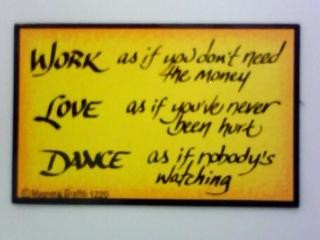 WORK as if you don't need
the money
LOVE as if you've never
been hurt
DANCE as if nobody's
watching